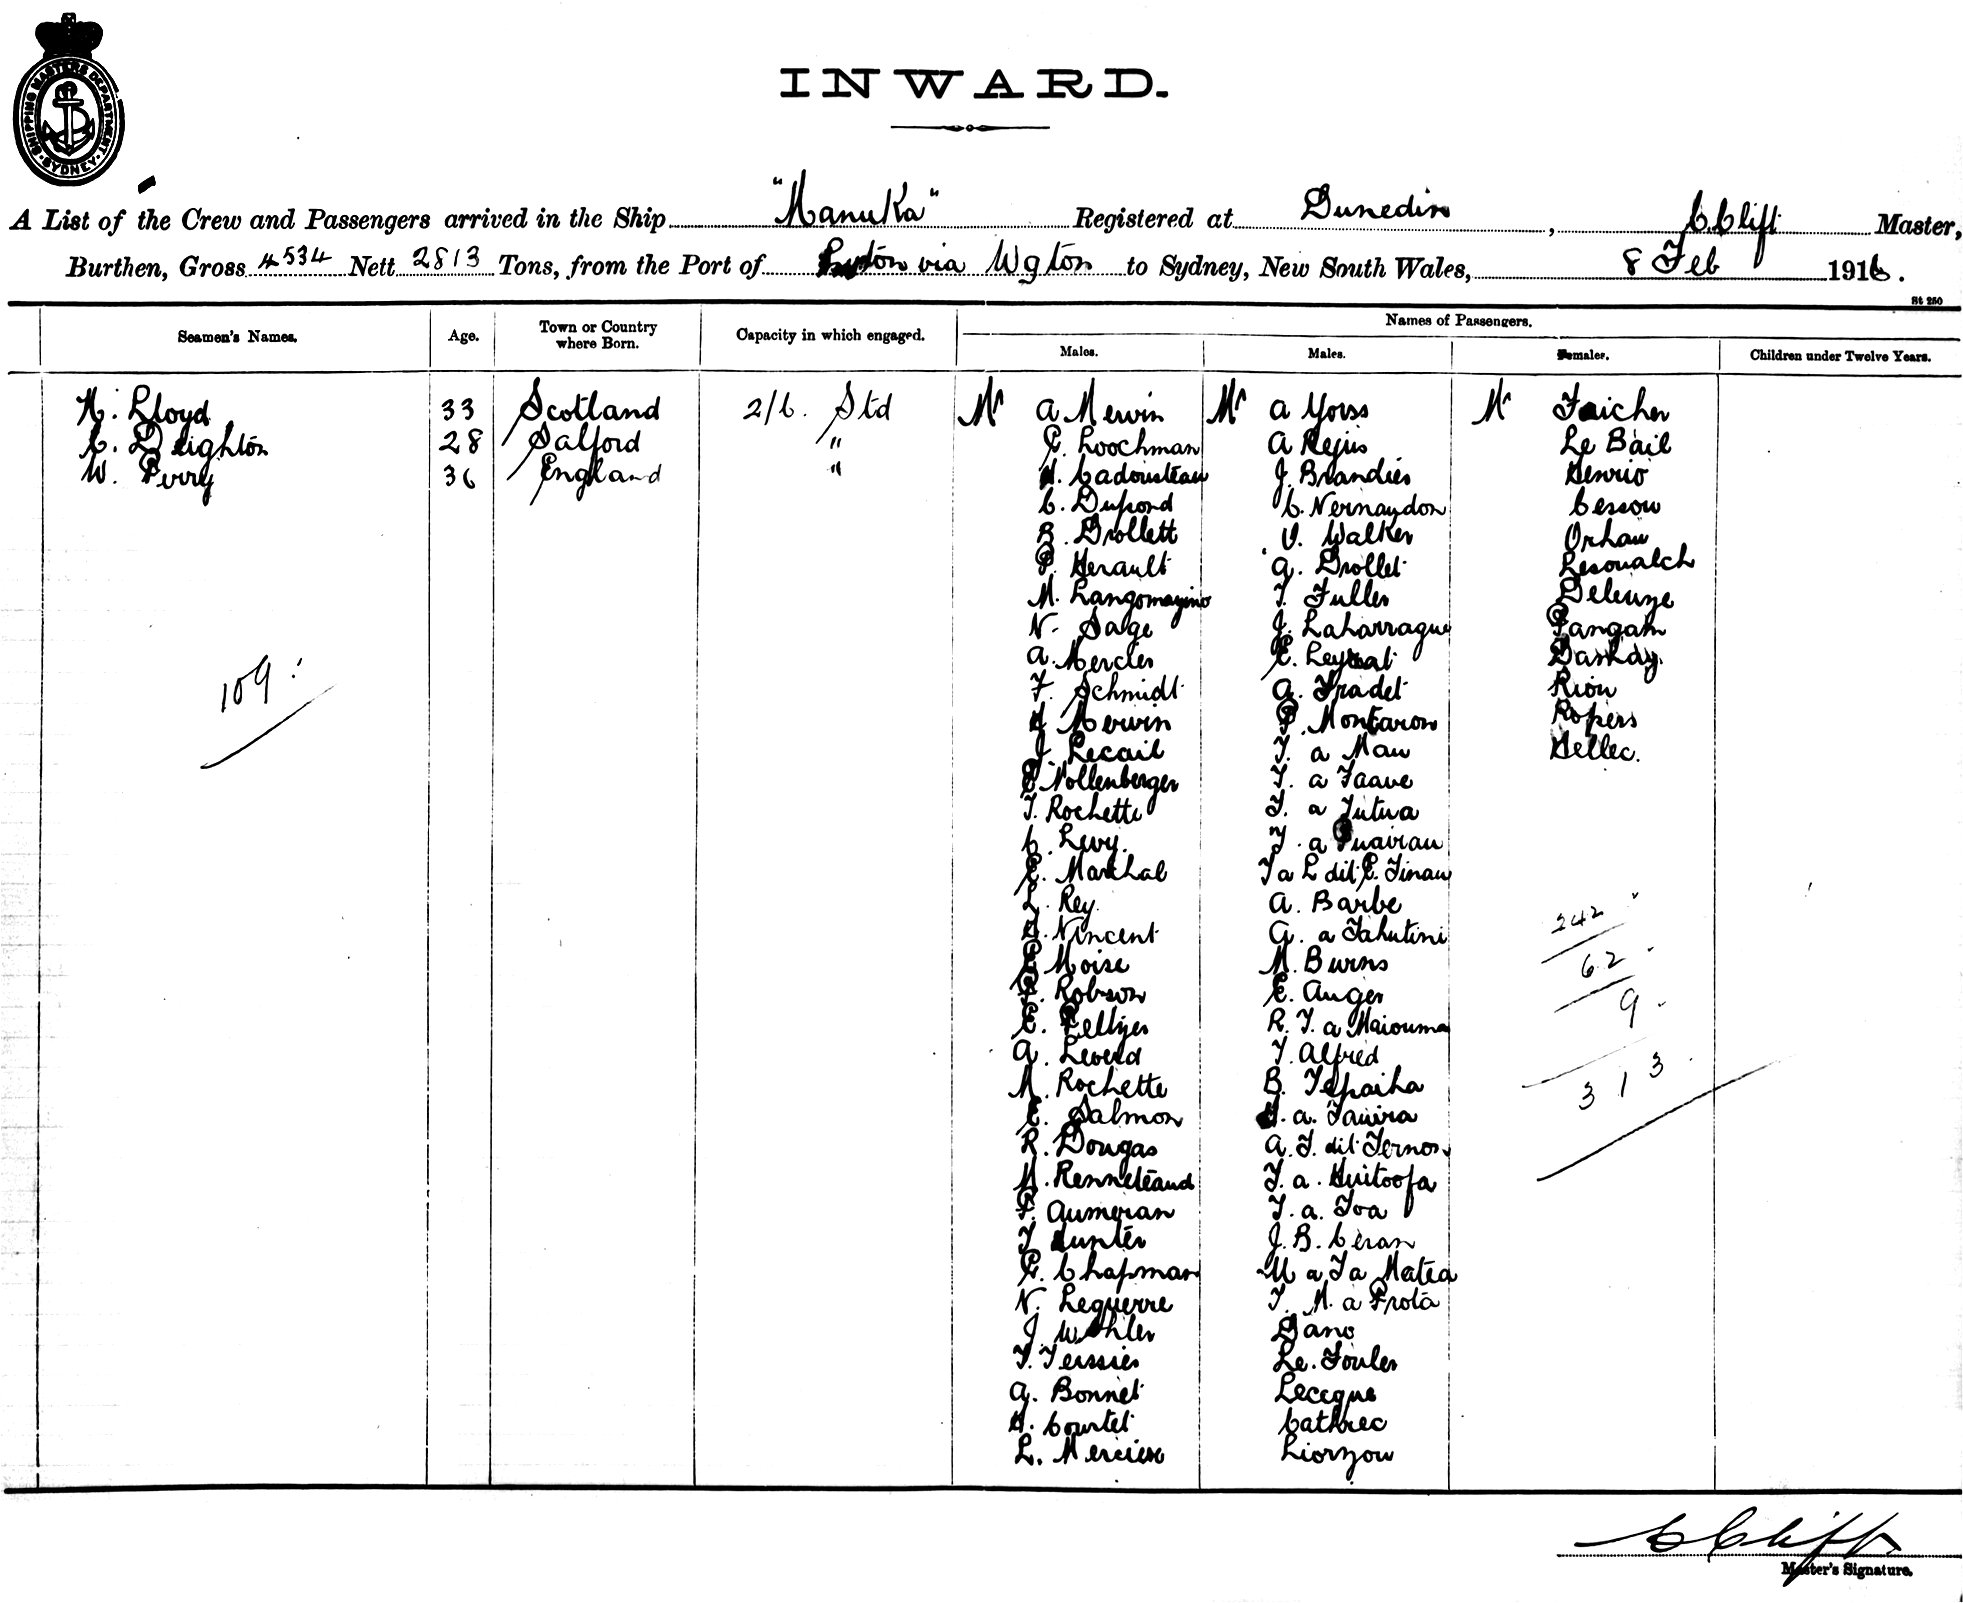 SHIPPING MASTERS DEPARTMENT. SYDNEY.
INWARD.
A List of the Crew and Passengers arrived in the Ship "Manuka" Registered at Dunedin, C. Clift Master,
Burthen, Gross 4534 Nett 2813 Tons, from the Port of via Wgton to Sydney, New South Wales, 8 Feb 1916.
St 250
Seamen's Names. Age. Town or Country where Born. Capacity in which engaged. Names of Passengers.
Males. Males. Females. Children under Twelve Years.
H. Lloyd 33 Scotland 2/C. Std Mr A Mervin Mr A Yorss Mr Faicher
C. Deighton 28 Salford " E. Loochman A Rejus Le Bail
W. Perry 36 England " H. Cadousteau J. Brandies Henrio
C. Dupond C. Vernaudon Cessou
B. Drollett V. Walker Orhan
P. Herault A. Drollet Lesoualch
M. Langomazino T. Fuller Deleuze
N. Sage J. Laharrague Pangam
A. Mercier E. Leyral Darhay.
F. Schmidt A. Fradet Riou
H Mervin P. Montaron Ropers
J. Lecail T. a Mau Hellec.
E Nollenberger T. a Faave
T. Rochette T. a Tutua
C. Levy. T. a Puairau
E. Marchal T a L dit E. Tinau
L. Rey A. Barbe 242
H. Vincent A. a Tahutini
E Moise M. Burns 62
P. Robson E. Auger 9
E. Peltzer R. T. a Maiouma
A. Leverd T. Alfred 313
M. Rochette B. Tepaiha
E. Salmon T. a. Tauira
R. Dougas A. T. dit Ternon
M. Renneteaud T. a. Huitoofa
P. Aumeran T. a. Toa
T Hunter J. B. Ceran
E. Chapman M a Ta Matea
N. Leguerre T. M. a Prota
J. Wohler Dano
T. Teissier Le. Fouler
A. Bonnet Lecegue
H. Courtet Cathrec
L. Mercier Liorzou
109
C Clift
Master's Signature.